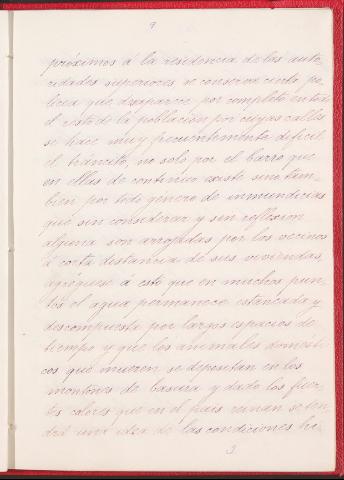 9
próximos á la residencia de las auto-
ridades superiores se conserva cierta po-
licia que desaparece por completo en todo
el resto de la poblacion por cuyas calles
se hace muy frecuentemente dificil
el transito, no solo por el barro que
en ellas de continuo existe sino tam-
bien por todo genero de inmundicias
que sin considerar y sin reflexion
alguna son arrojadas por los vecinos
á corta distancia de sus viviendas,
agréguese á esto que en muchos pun-
tos el agua permanece estancada y
descompuesta por largos espacios de
tiempo y que los animales domesti-
cos que mueren se depositan en los
montones de basura y dado los fuer-
tes calores que en el pais reinan se ten-
drá una idea de las condiciones hi-
3